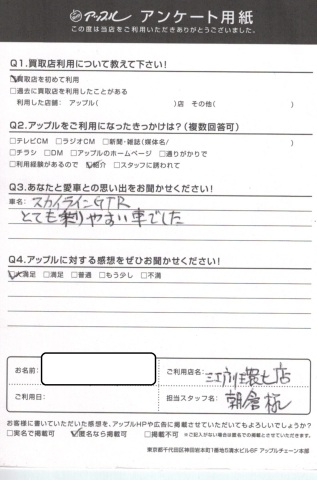 アップル アンケート用紙
この度は当店をご利用いただきありがとうございました。
Q1.買取店利用について教えて下さい!
☑買取店を初めて利用
□過去に買取店を利用したことがある
利用した店舗: アップル( )店 その他( )
Q2.アップルをご利用になったきっかけは?(複数回答可)
□テレビCM □ラジオCM □新聞・雑誌(媒体名/ )
□チラシ □DM □アップルのホームページ □通りがかりで
□利用経験があるので ☑紹介 □スタッフに誘われて
Q3.あなたと愛車との思い出をお聞かせください!
車名: スカイラインGTR
とても乗りやすい車でした
Q4.アップルに対する感想をぜひお聞かせください!
☑大満足 □満足 □普通 □もう少し □不満
お名前:
ご利用店名: 江戸川瑞江店
ご利用日:
担当スタッフ名: 朝倉様
お客様に書いていただいた感想を、アップルHPや広告に掲載させていただいてもよろしいでしょうか?
□実名で掲載可 ☑匿名なら掲載可 □掲載不可 ※ご記入がない場合は匿名での掲載とさせていただきます。
東京都千代田区神田岩本町1番地5清水ビル6F アップルチェーン本部